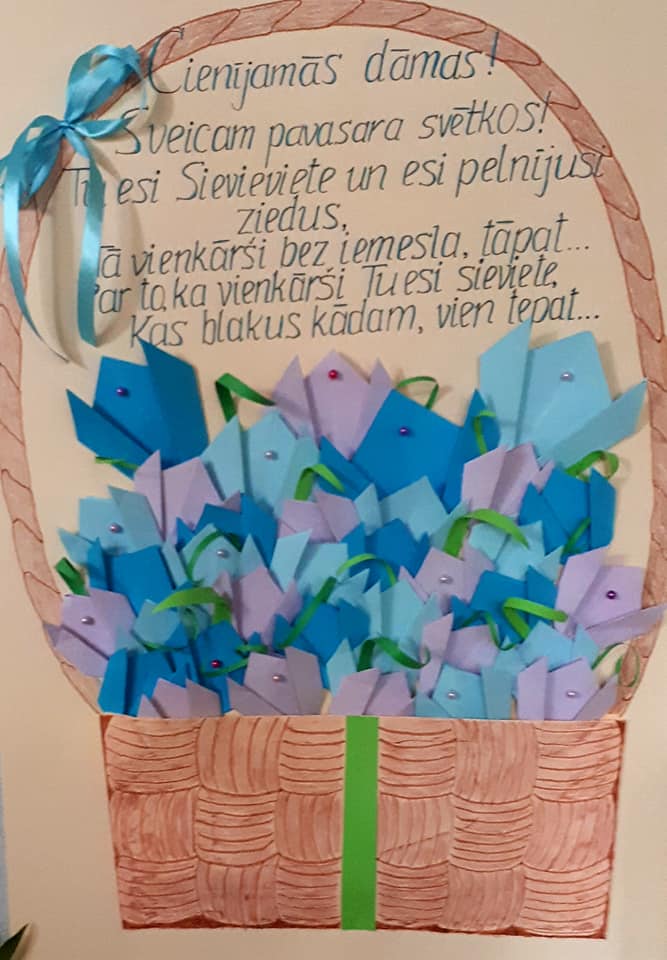 Cienījamās dāmas!
Sveicam pavasara svētkos!
Tu esi Sievieviete un esi pelnījusi
ziedus,
Tā vienkārši bez iemesla, tāpat...
Par to, ka vienkārši Tu esi sieviete,
Kas blakus kādam, vien tepat...